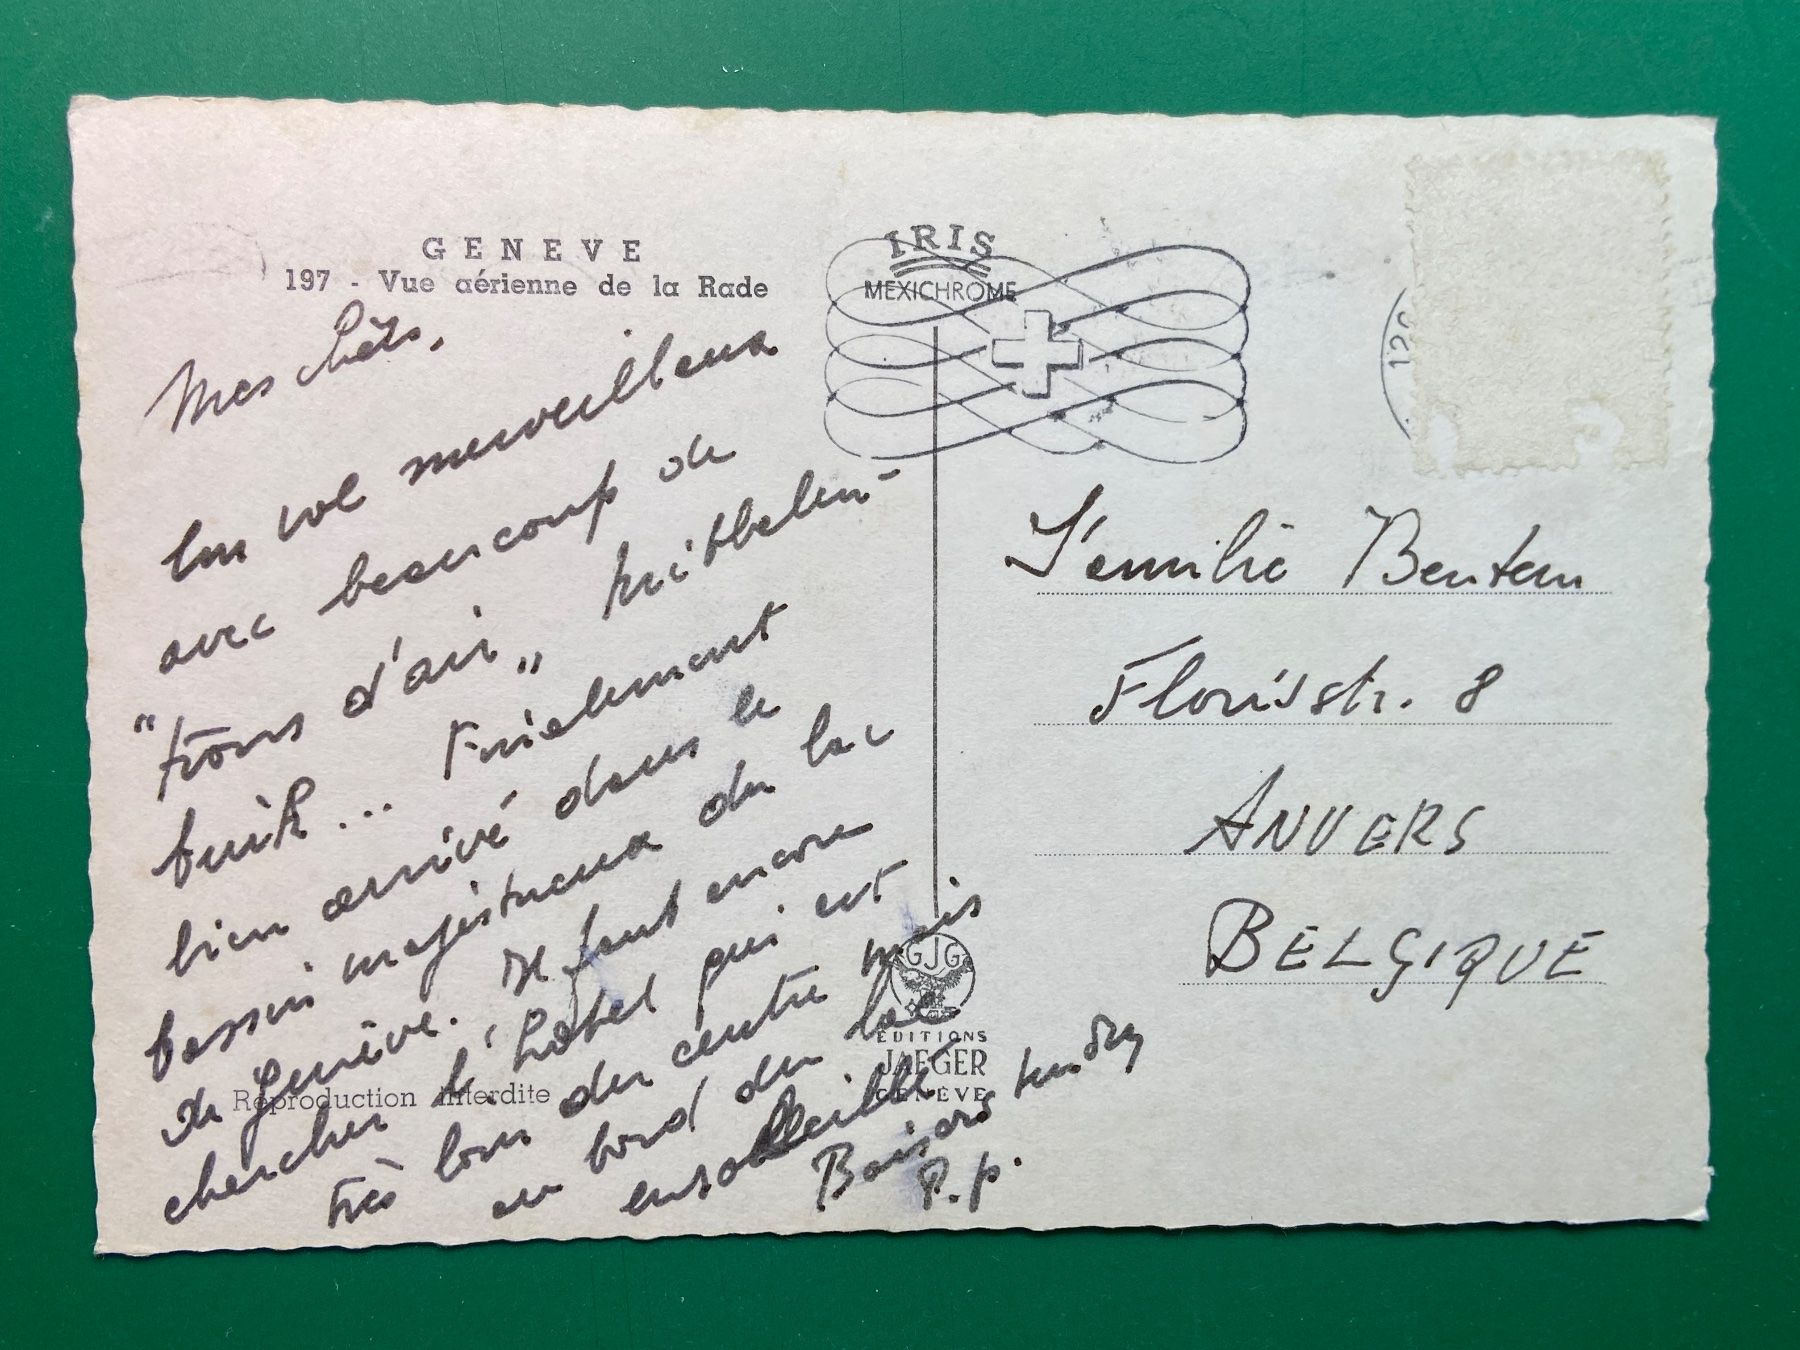 GENEVE
197 - Vue aérienne de la Rade
IRIS
MEXICHROME
Mes chéts,
Un vol merveilleux
avec beaucoup de
"trous d'air"
buik... Finalement
bien arrivé dans le
bassin majestueux du lac
de Genève. Il faut encore
chercher l'hôtel qui est
très loin du centre mais
au bord du lac
ensoleillé
Baisers tendres
P.p.
Reproduction interdite
GJG
EDITIONS
JAEGER
GENÈVE
Bentem
Florisstr. 8
ANVERS
BELGIQUE